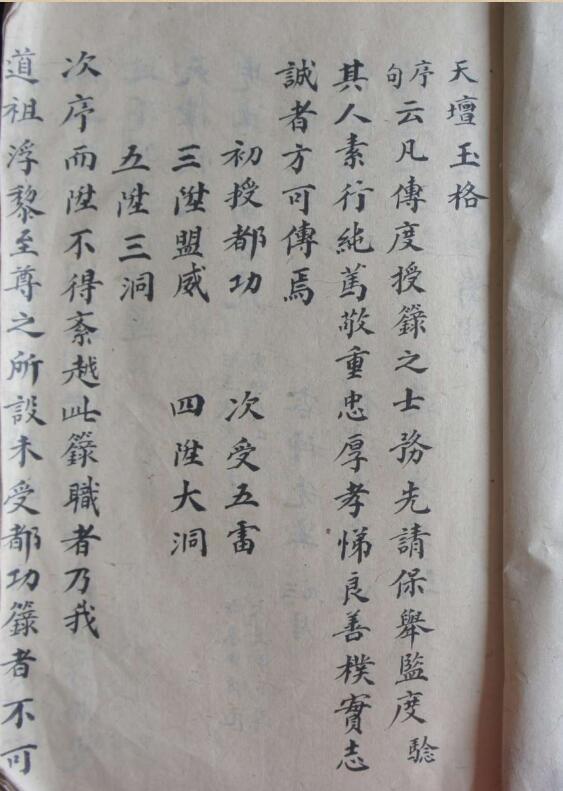 天壇玉格
序句云凡傳度授籙之士務先請保舉監度驗
其人素行純篤敬重忠厚孝悌良善樸實志
誠者方可傳焉
初授都功　次受五雷
三陞盟威　四陞大洞
五陞三洞
次序而陞不得紊越此籙職者乃我
道祖浮黎至尊之所設未受都功籙者不可